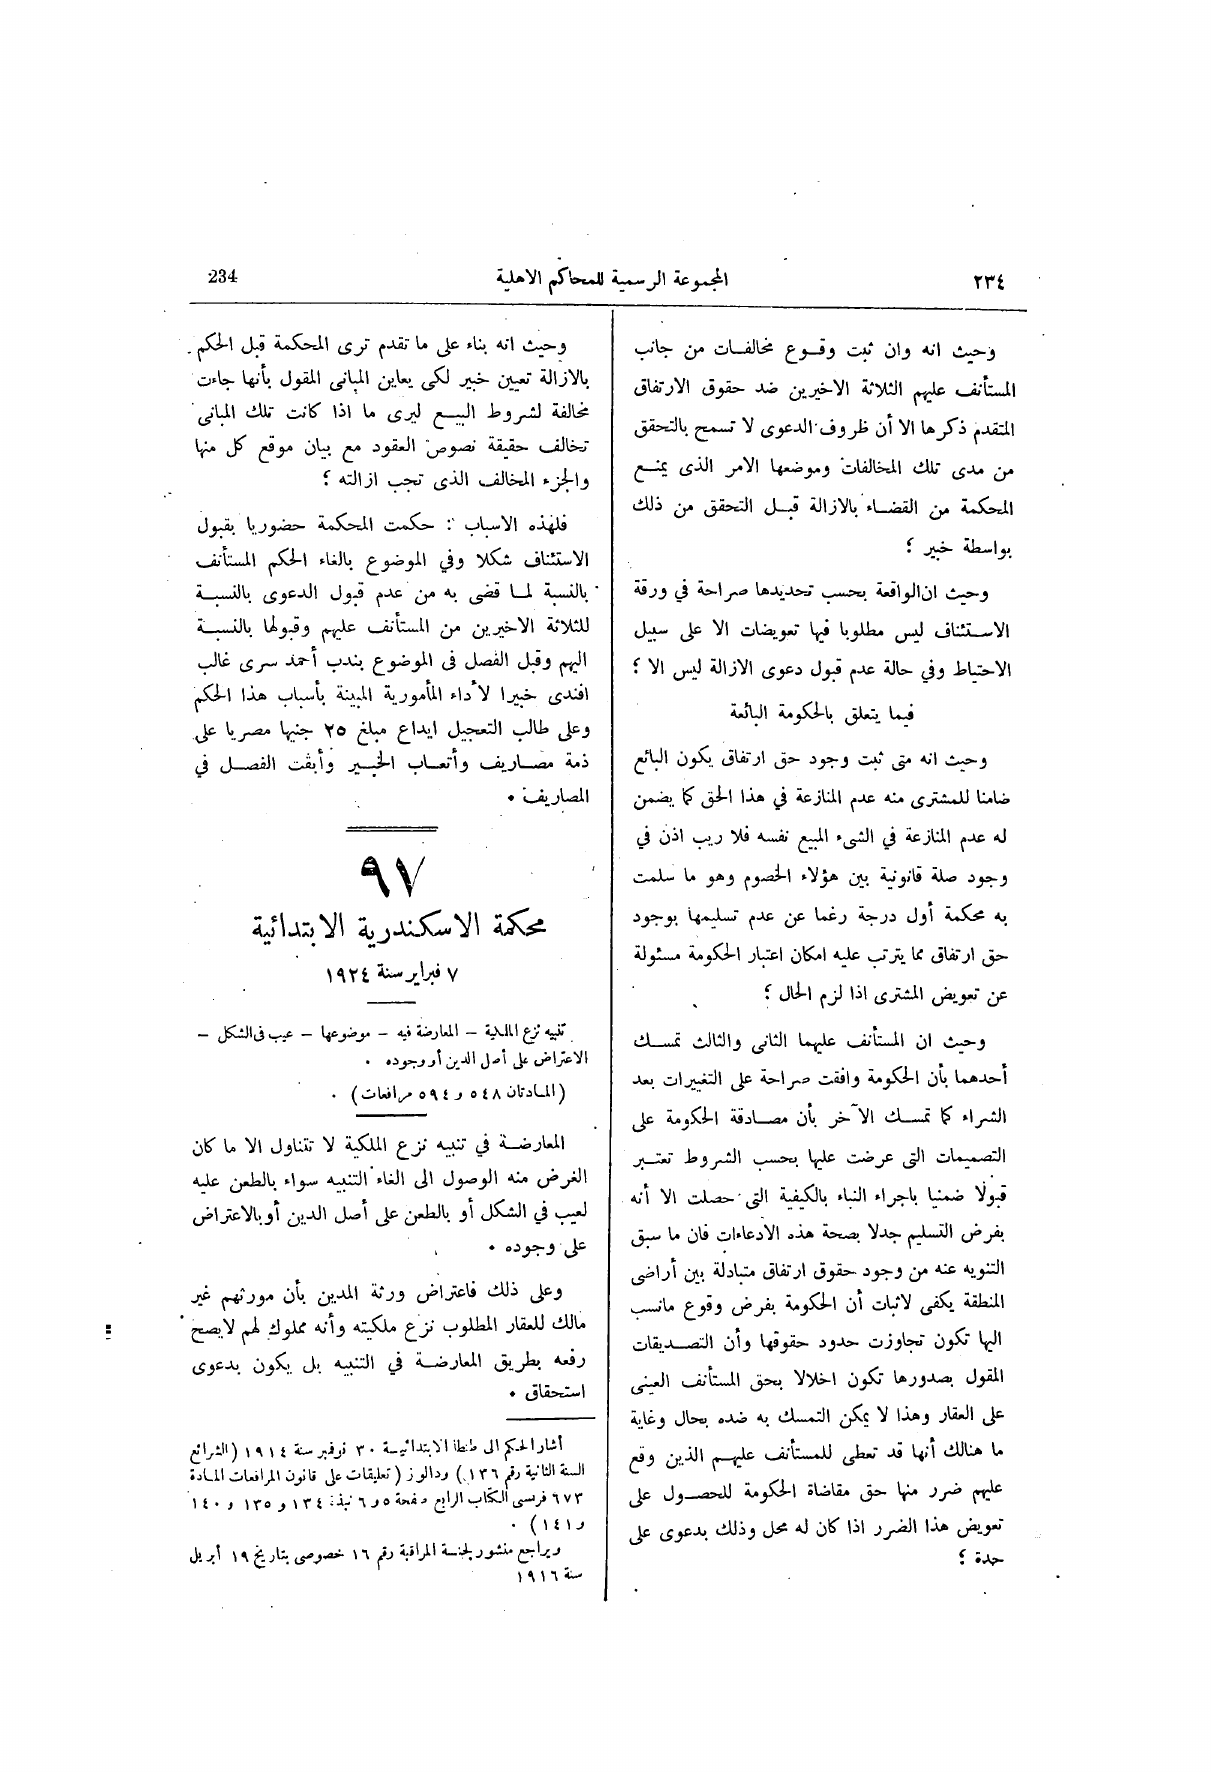 ٢٣٤
المجموعة الرسمية للمحاكم الاهلية
234
وحيث انه وان ثبت وقوع مخالفات من جانب
المستأنف عليهم الثلاثة الاخيرين ضد حقوق الارتفاق
المتقدم ذكرها الا أن ظروف الدعوى لا تسمح بالتحقق
من مدى تلك المخالفات وموضعها الامر الذى يمنع
المحكمة من القضاء بالازالة قبل التحقق من ذلك
بواسطة خبير ؛
وحيث ان الواقعة بحسب تحديدها صراحة في ورقة
الاستئناف ليس مطلوبا فيها تعويضات الا على سبيل
الاحتياط وفي حالة عدم قبول دعوى الازالة ليس الا ؛
فيما يتعلق بالحكومة البائعة
وحيث انه متى ثبت وجود حق ارتفاق يكون البائع
ضامنا للمشترى منه عدم المنازعة في هذا الحق كما يضمن
له عدم المنازعة في الشىء المبيع نفسه فلا ريب اذن في
وجود صلة قانونية بين هؤلاء الخصوم وهو ما سلمت
به محكمة أول درجة رغما عن عدم تسليمها بوجود
حق ارتفاق مما يترتب عليه امكان اعتبار الحكومة مسئولة
عن تعويض المشترى اذا لزم الحال ؛
وحيث ان المستأنف عليهما الثانى والثالث تمسك
أحدهما بأن الحكومة وافقت صراحة على التغييرات بعد
الشراء كما تمسك الآخر بأن مصادقة الحكومة على
التصميمات التى عرضت عليها بحسب الشروط تعتبر
قبولا ضمنيا باجراء البناء بالكيفية التى حصلت الا أنه
بفرض التسليم جدلا بصحة هذه الادعاءات فان ما سبق
التنويه عنه من وجود حقوق ارتفاق متبادلة بين أراضى
المنطقة يكفى لاثبات أن الحكومة بفرض وقوع مانسب
اليها تكون تجاوزت حدود حقوقها وأن التصديقات
المقول بصدورها تكون اخلالا بحق المستأنف العينى
على العقار وهذا لا يمكن التمسك به ضده بحال وغاية
ما هنالك أنها قد تعطى للمستأنف عليهم الذين وقع
عليهم ضرر منها حق مقاضاة الحكومة للحصول على
تعويض هذا الضرر اذا كان له محل وذلك بدعوى على
حدة ؛
وحيث انه بناء على ما تقدم ترى المحكمة قبل الحكم
بالازالة تعيين خبير لكى يعاين المبانى المقول بأنها جاءت
مخالفة لشروط البيع ليرى ما اذا كانت تلك المبانى
تخالف حقيقة نصوص العقود مع بيان موقع كل منها
والجزء المخالف الذى تجب ازالته ؛
فلهذه الاسباب : حكمت المحكمة حضوريا بقبول
الاستئناف شكلا وفي الموضوع بالغاء الحكم المستأنف
بالنسبة لما قضى به من عدم قبول الدعوى بالنسبة
للثلاثة الاخيرين من المستأنف عليهم وقبولها بالنسبة
اليهم وقبل الفصل فى الموضوع بندب أحمد سرى غالب
افندى خبيرا لأداء المأمورية المبينة بأسباب هذا الحكم
وعلى طالب التعجيل ايداع مبلغ ٢٥ جنيها مصريا على
ذمة مصاريف وأتعاب الخبير وأبقت الفصل في
المصاريف .
٩٧
محكمة الاسكندرية الابتدائية
٧ فبراير سنة ١٩٢٤
تنبيه نزع الملكية – المعارضة فيه – موضوعها – عيب فى الشكل –
الاعتراض على أصل الدين أو وجوده .
(المادتان ٥٤٨ و ٥٩٤ مرافعات) .
المعارضة في تنبيه نزع الملكية لا تتناول الا ما كان
الغرض منه الوصول الى الغاء التنبيه سواء بالطعن عليه
لعيب في الشكل أو بالطعن على أصل الدين أو بالاعتراض
على وجوده .
وعلى ذلك فاعتراض ورثة المدين بأن مورثهم غير
مالك للعقار المطلوب نزع ملكيته وأنه مملوك لهم لا يصح
رفعه بطريق المعارضة في التنبيه بل يكون بدعوى
استحقاق .
أشار الحكم الى طنطا الابتدائية ٣٠ نوفمبر سنة ١٩١٤ (الشرائع
السنة الثانية رقم ١٣٦) ودالوز (تعليقات على قانون المرافعات المادة
٦٧٣ فرنسى الكتاب الرابع صفحة ٥ و ٦ نبذة ١٣٤ و ١٣٥ و ١٤٠
و ١٤١) .
ويراجع منشور لجنة المراقبة رقم ١٦ خصوصى بتاريخ ١٩ أبريل
سنة ١٩١٦